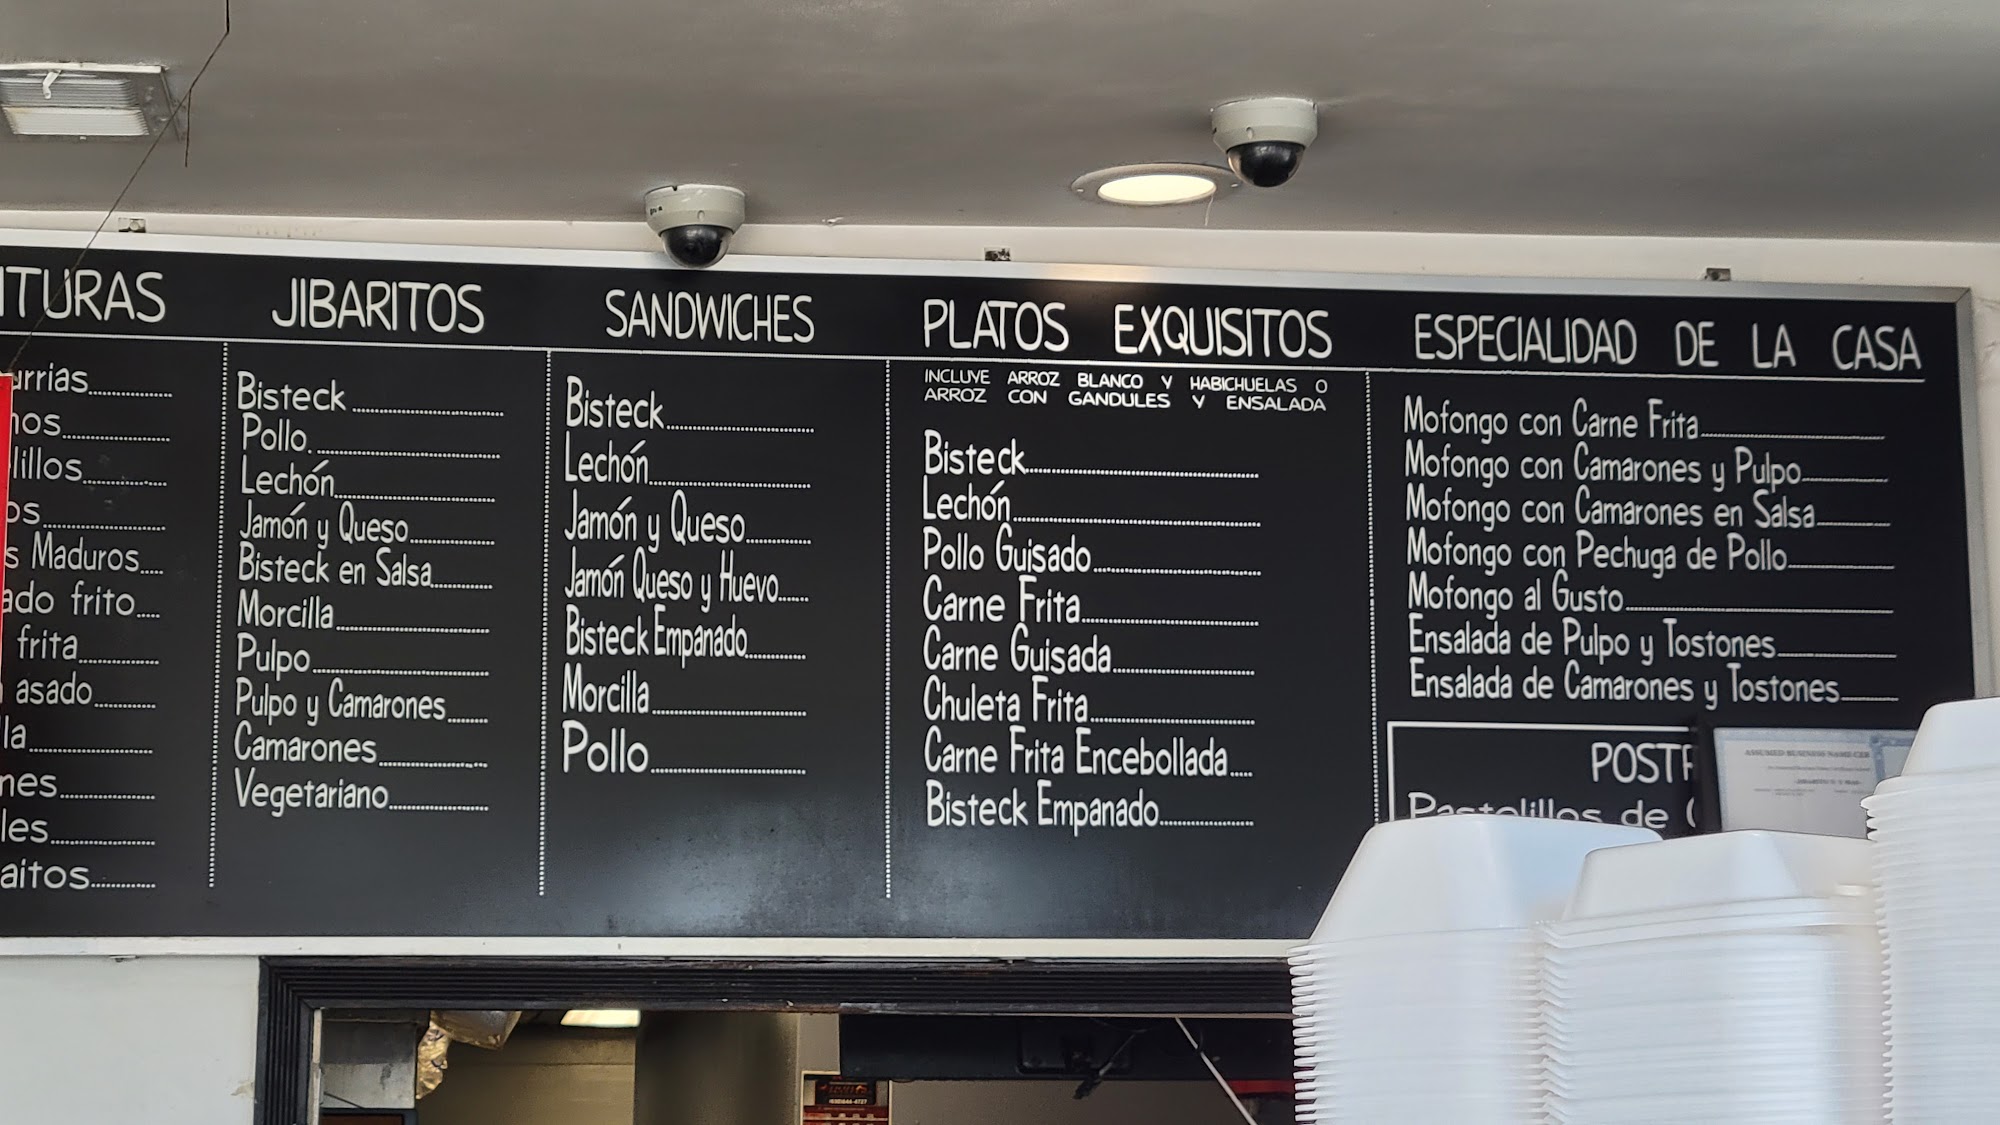 ITURAS
urrias
nos
lillos
os
s Maduros
ado frito
frita
asado
la
nes
les
aitos
JIBARITOS
Bisteck
Pollo.
Lechón
Jamón y Queso
Bisteck en Salsa
Morcilla
Pulpo
Pulpo y Camarones
Camarones
Vegetariano
SANDWICHES
Bisteck
Lechón
Jamón y Queso
Jamón Queso y Huevo
Bisteck Empanado
Morcilla
Pollo
PLATOS EXQUISITOS
INCLUYE ARROZ BLANCO Y HABICHUELAS O
ARROZ CON GANDULES Y ENSALADA
Bisteck
Lechón
Pollo Guisado
Carne Frita
Carne Guisada
Chuleta Frita
Carne Frita Encebollada
Bisteck Empanado
ESPECIALIDAD DE LA CASA
Mofongo con Carne Frita
Mofongo con Camarones y Pulpo
Mofongo con Camarones en Salsa
Mofongo con Pechuga de Pollo
Mofongo al Gusto
Ensalada de Pulpo y Tostones
Ensalada de Camarones y Tostones
POSTR
Pastelillos de
ASSUMED BUSINESS NAME